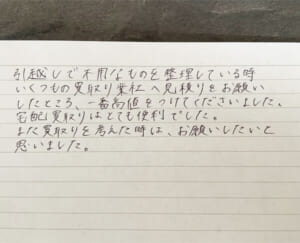 引越しで不用なものを整理している時
いくつもの買取り業社へ見積りをお願い
したところ、一番高値をつけてくださいました。
宅配買取りはとても便利でした。
また買取りを考えた時は、お願いしたいと
思いました。